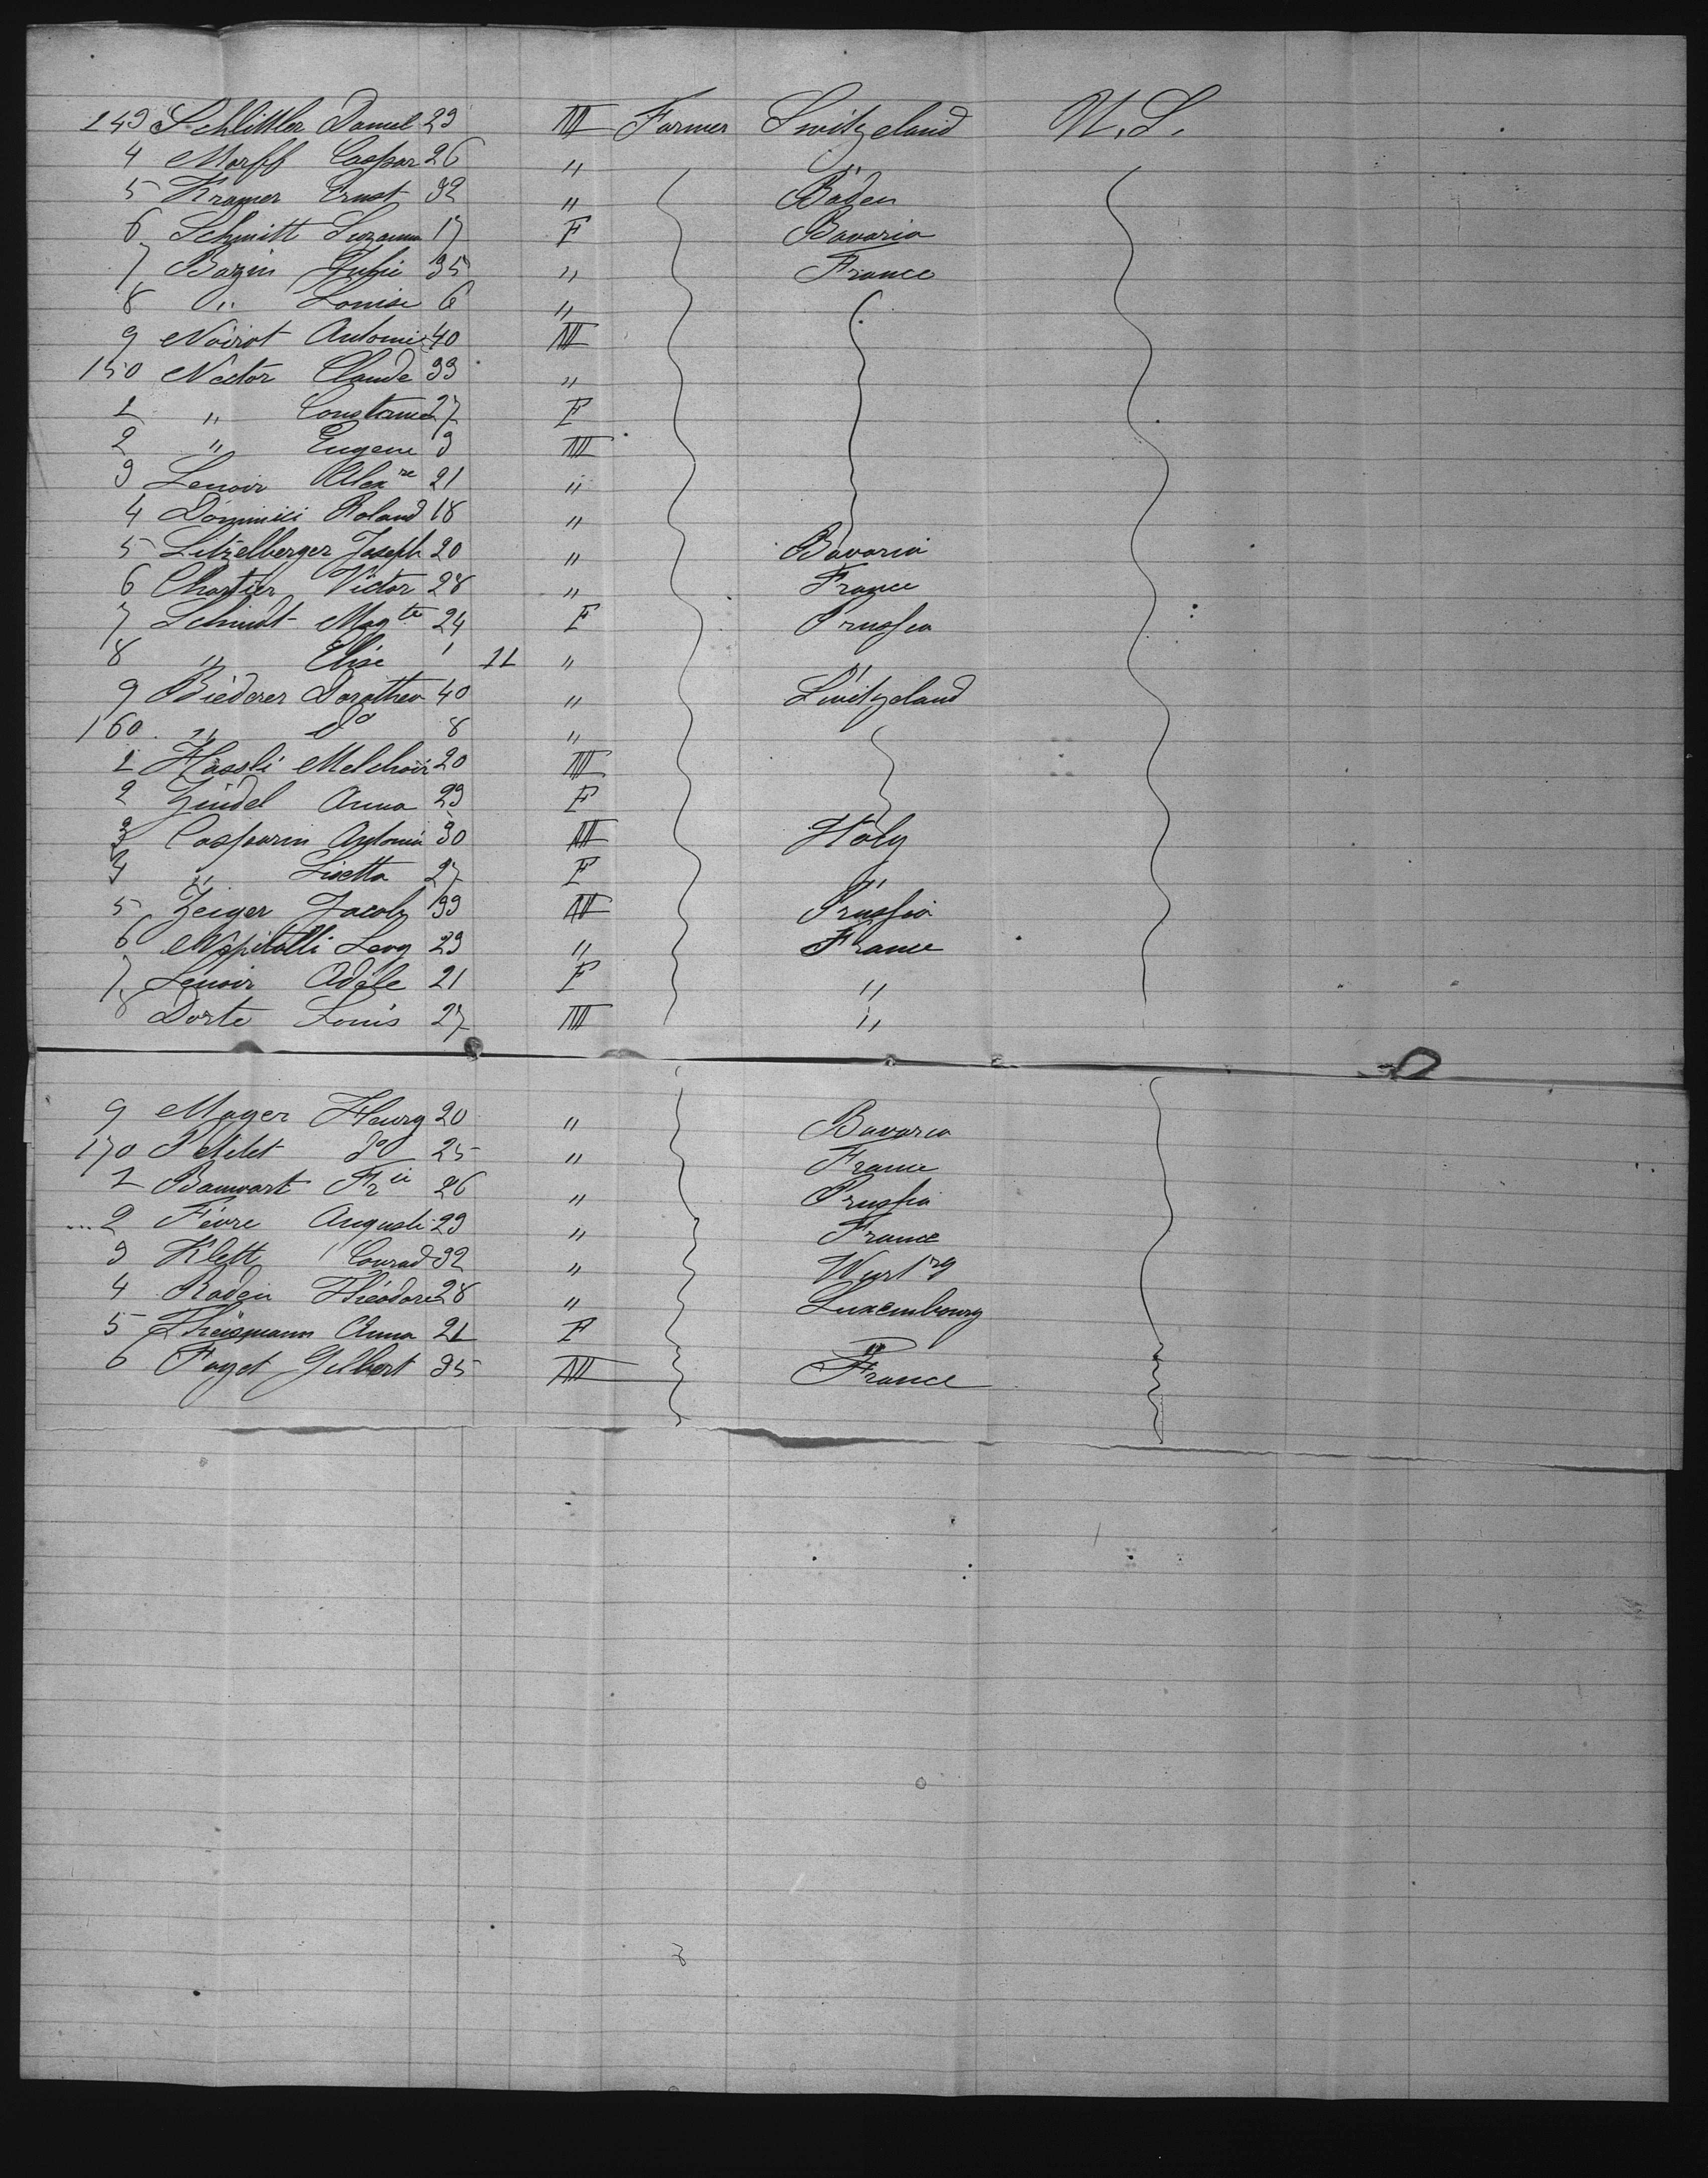 143 Schlittler Daniel 23 M Farmer Switzeland U.S.
4 Morff Caspar 26 " "
5 Kramer Ernst 32 " Baden
6 Schmitt Suzanna 17 F Bavaria
7 Bazin Julie 35 " France
8 " Louise 6 "
9 Noirot Antoni 40 M
150 Nector Claude 33 "
1 " Constance 27 F
2 " Eugene 3 M
3 Lenoir Alexre 21 "
4 Dominici Roland 18 "
5 Litzelberger Joseph 20 " Bavaria
6 Chartier Victor 28 " France
7 Schmidt Magte 24 F Prussia
8 " Elise 1 11 " "
9 Biederer Dorothea 40 " Switzeland
160 " do 8 "
1 Hassli Melchoir 20 M
2 Zindel Anna 23 F
3 Casparin Antonio 30 M Italy
4 " Lisetta 27 F "
5 Zeiger Jacob 33 M Prussia
6 Levy 23 " France
7 Lenoir Adèle 21 F "
8 Dorte Louis 27 M "
9 Mayer Henry 20 " Bavaria
170 Petitet do 25 " France
1 Banwart 26 " Prussia
2 Fèvre Auguste 23 " France
3 Klett Conrad 32 " Wurtrg
4 Radein Théodore 28 " Luxembourg
5 Theismann Anna 21 F "
6 Faget Gilbert 35 M France